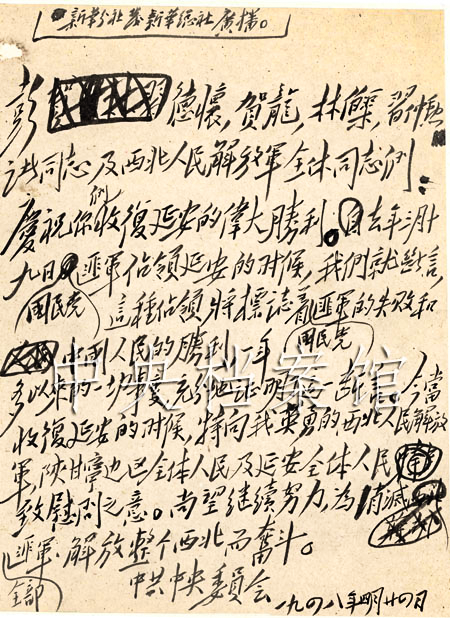 新華總社廣播。
彭德懷,賀龍,林伯渠,習仲勛
諸同志及西北人民解放軍全体同志們:
們
慶祝你收復延安的偉大勝利。自去年三月十
九日匪軍佔領延安的时候,我們就断言,
國民党 這種佔領將標誌着匪軍的失败和
國民党
中國人民的勝利。一年
多以來的一切事变,充分地証明了這一断言。今當
中央档案馆
收復延安的时候,特向我英勇的西北人民解放
軍,陝甘寧边区全体人民及延安全体人民
致慰問之意。尚望继續努力,為消滅
匪軍、解放整个西北而奮斗。
全部
中共中央委員会
一九四八年四月廿四日